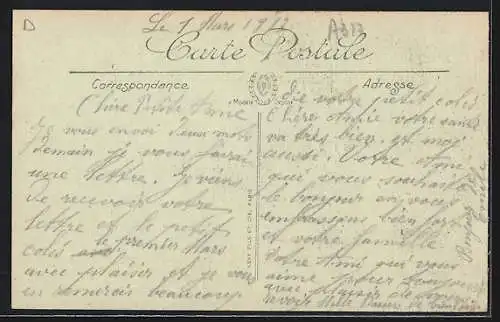 D
Le 1 Mars 1917
A313
Carte Postale
Correspondance
Adresse
Chère Petite Amie
Je vous envoi deux mots
demain je vous ferai
une lettre. Je viens
de recevoir votre
lettre et le petit
colis le premier Mars
avec plaisir et je vous
en remercis beaucoup
de votre petit colis
Chère Amie votre santé
va très bien et moi
aussi. Votre Ami
qui vous souhaite
le bonjour en vous
embrassons bien fort
et votre famille
Votre Ami qui vous
aime pour toujours
avec plaisir de
revoir
Bonjour
famille